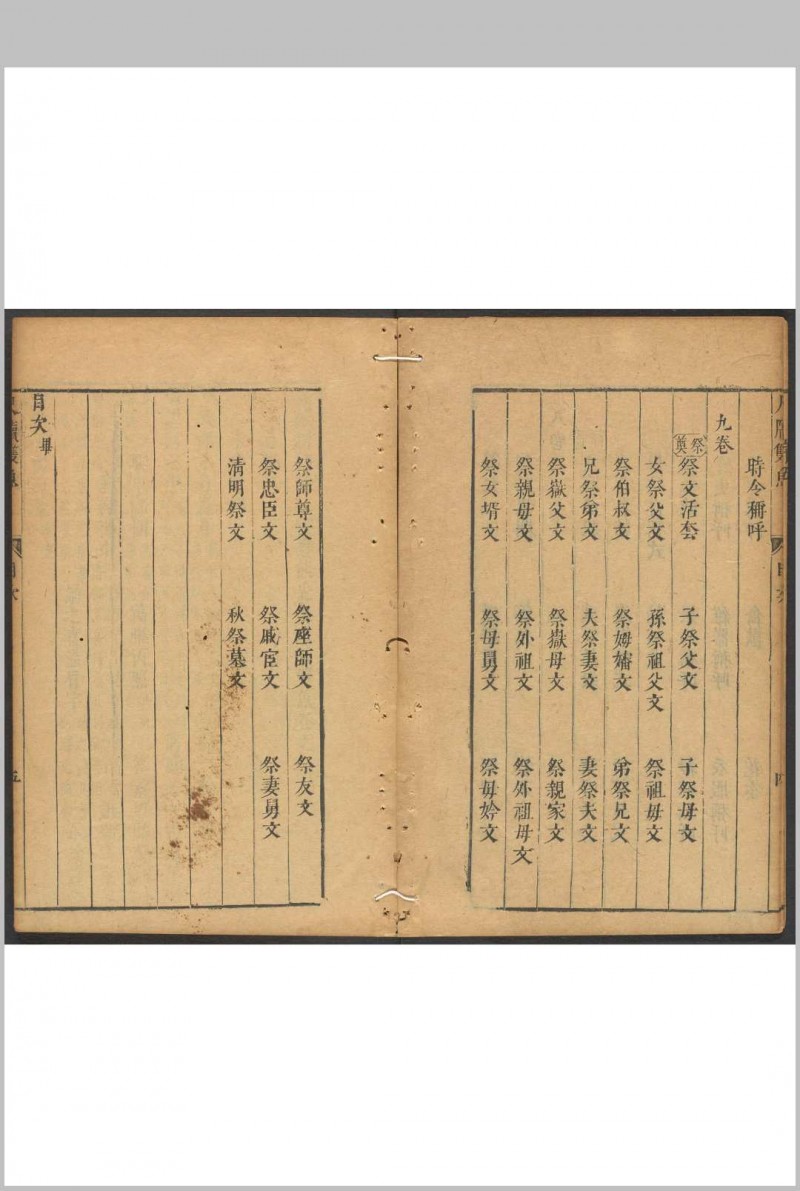 時令稱呼
九卷
祭奠
祭文活套 子祭父文 子祭母文
女祭父文 孫祭祖父文 祭祖母文
祭伯叔文 祭姆嬸文 弟祭兄文
兄祭弟文 夫祭妻文 妻祭夫文
祭嶽父文 祭嶽母文 祭親家文
祭親母文 祭外祖文 祭外祖母文
祭女壻文 祭母舅文 祭母妗文
祭師尊文 祭座師文 祭友文
祭忠臣文 祭戚宦文 祭妻舅文
清明祭文 秋祭墓文
目次畢